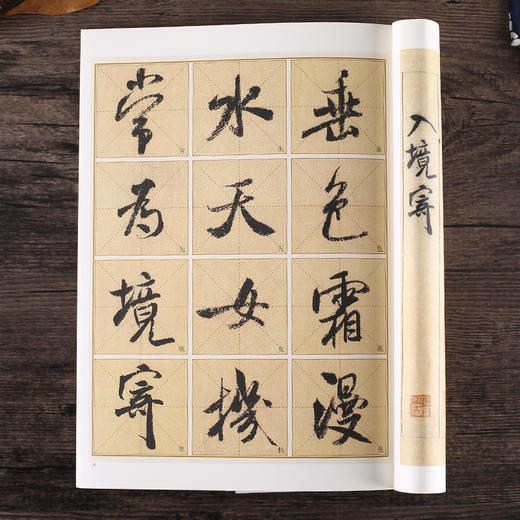 入境寄
垂色霜漫
水天女機
常為境寄